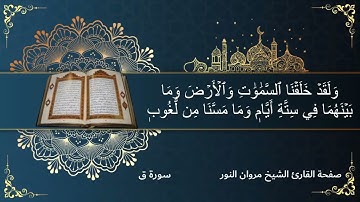 وَلَقَدۡ خَلَقۡنَا ٱلسَّمَٰوَٰتِ وَٱلۡأَرۡضَ وَمَا
بَيۡنَهُمَا فِي سِتَّةِ أَيَّامٖ وَمَا مَسَّنَا مِن لُّغُوبٖ
صفحة القارئ الشيخ مروان النور
سورة ق